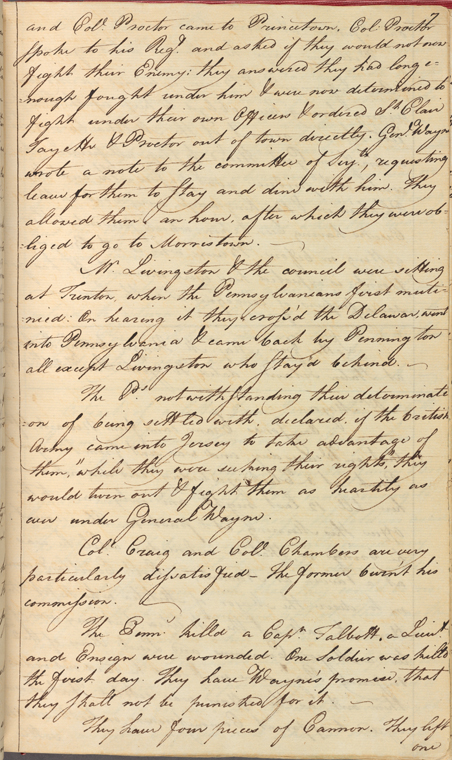 7
and Col.º Proctor came to Princetown. Col Proctor
spoke to his Reg.t and asked if they would not now
fight their Enemy: they answered they had long e-
nough fought under him & were now determined to
fight under their own officers & ordered S.t Clair
Fayette & Proctor out of town directly. Gen. Wayne
wrote a note to the committee of Serj.ts requesting
leave for them to stay and dine with him. They
allowed them an hour, after which they were ob-
liged to go to Morristown.
M.r Livingston & the council were setting
at Trenton, when the Pennsylvaneans first muti-
nied. On hearing it they cross'd the Delawar, went
into Pennsylvania & came back by Pennington
all except Livingston who stay'd behind.
The P.s notwithstanding their determinati-
on of being settled with, declared, if the British
Army came into Jersey to take advantage of
them, "while they were seeking their rights," they
would turn out & fight them as heartily as
ever under General Wayne.
Col.l Craig and Coll. Chambers are very
particularly dissatisfied – the former burnt his
commission.
The Penn.s killd a Cap.tn Talbott, a Lieu.t
and Ensign were wounded. One Soldier was killed
the first day. They have Wayne's promise, that
they shall not be punished for it.
They have four pieces of Cannon. They left
one